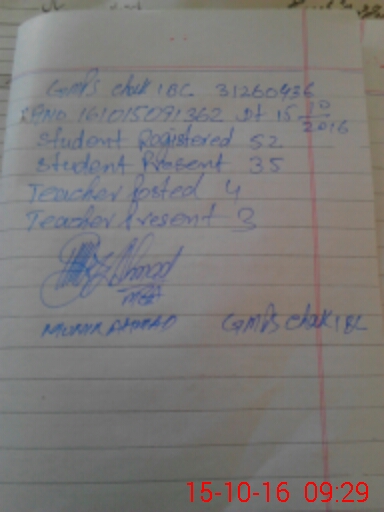 GMPS chak 1BC 31260436
161015091362 Dt 15 10
2016
Student Registered 52
Student Present 35
Teacher Posted 4
Teacher Present 3
Ahmad
MEA
MUNIR AHMAD GMPS chak 1BC
15-10-16 09:29